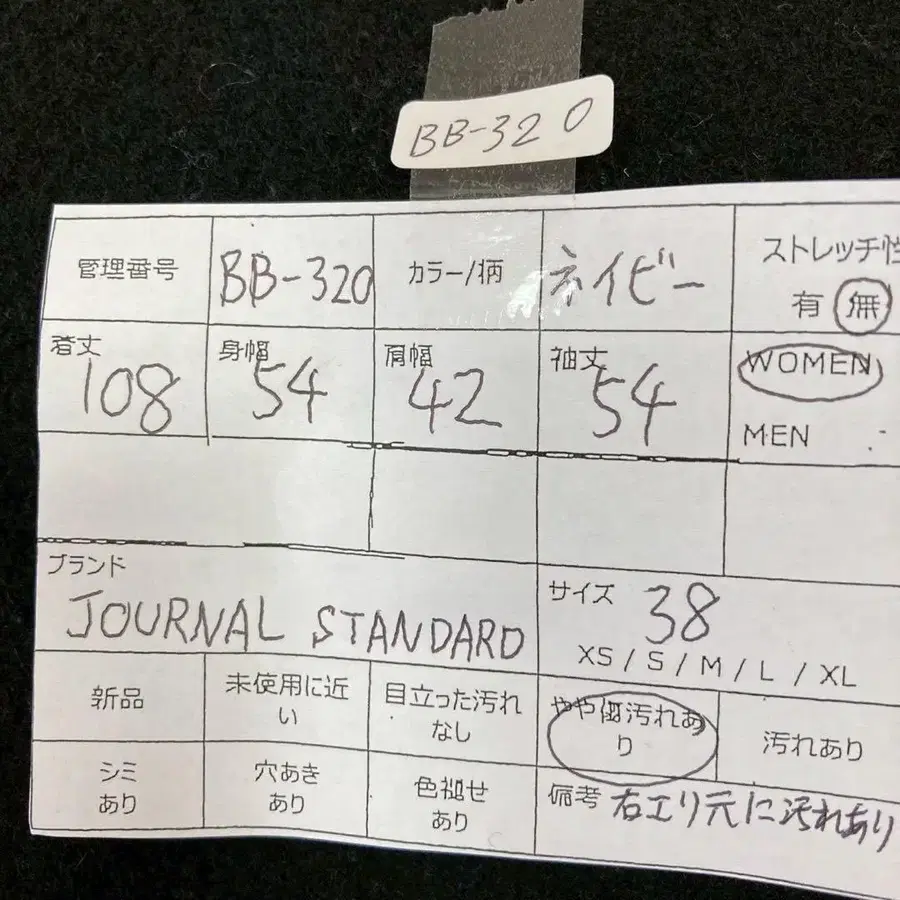 BB-320
管理番号 BB-320 カラー/柄 ネイビー ストレッチ性
有 無
着丈 身幅 肩幅 袖丈 WOMEN
108 54 42 54
MEN
ブランド サイズ 38
JOURNAL STANDARD
XS / S / M / L / XL
新品 未使用に近い 目立った汚れなし やや傷汚れあり 汚れあり
シミあり 穴あきあり 色褪せあり 備考 右エリ元に汚れあり